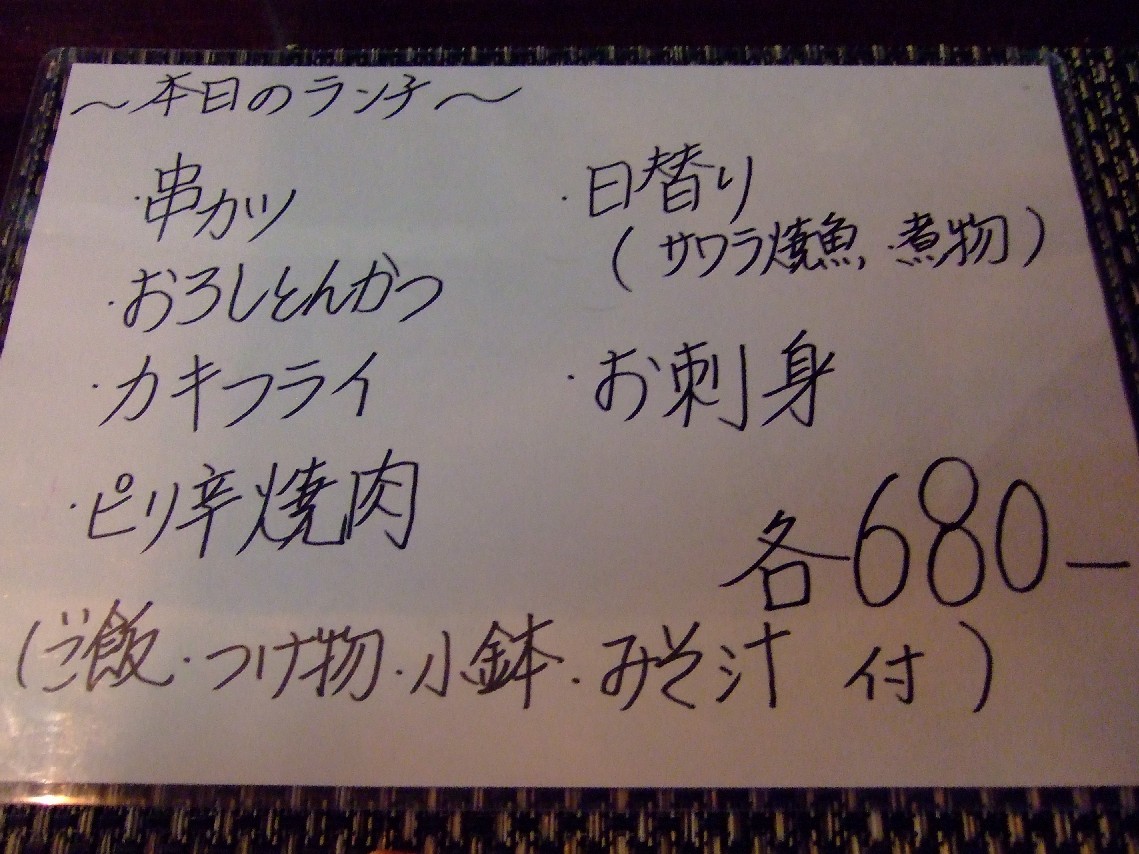 ～本日のランチ～
・串カツ
・おろしとんかつ
・カキフライ
・ピリ辛焼肉
・日替り
(サワラ焼魚、煮物)
・お刺身
各680－
(ご飯・つけ物・小鉢・みそ汁 付)